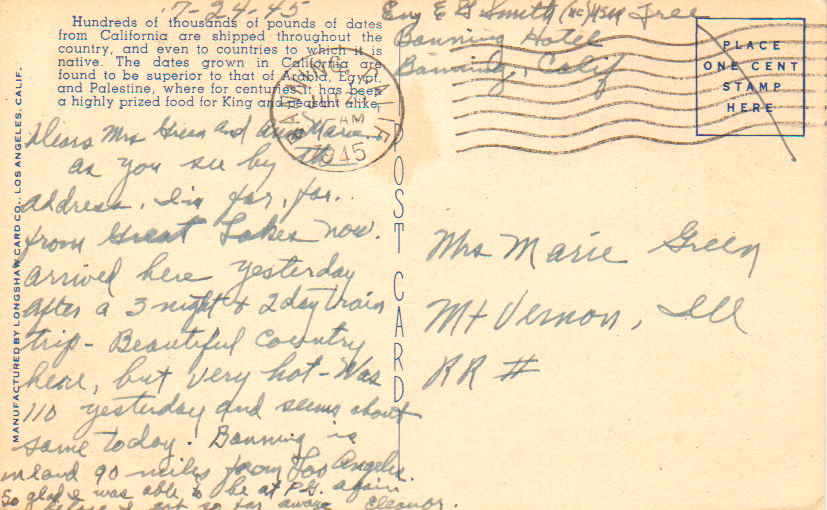 7-24-45
Hundreds of thousands of pounds of dates
from California are shipped throughout the
country, and even to countries to which it is
native. The dates grown in California are
found to be superior to that of Arabia, Egypt,
and Palestine, where for centuries it has been
a highly prized food for King and peasant alike.
MANUFACTURED BY LONGSHAW CARD CO., LOS ANGELES, CALIF.
Smith (NC) USNR Free
Banning Hotel
Banning, Calif
PLACE
ONE CENT
STAMP
HERE
AM
1945
POST CARD
Dear Mrs Green and Anna Marie
as you see by the
address, I'm far, far..
from Great Lakes now.
arrived here yesterday
after a 3 night & 2 day train
trip - Beautiful Country
here, but very hot - Was
110 yesterday and seems about
same today. Banning is
inland 90 miles from Los Angeles.
So glad I was able to be at P.G. again
before I got so far away Eleanor.
Mrs Marie Green
Mt Vernon, Ill
RR #